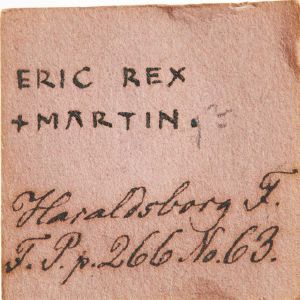 ERIC REX
+MARTIN.
Haraldsborg F.
F. P. p. 266 No. 63.